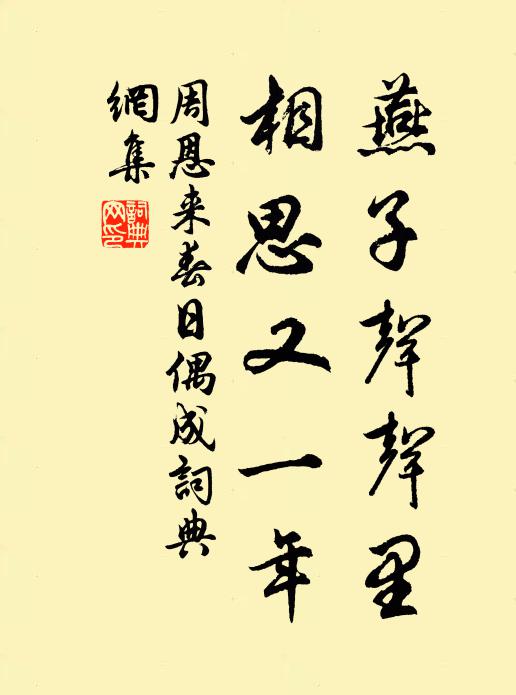 燕子聲聲里
相思又一年
周恩来春日偶成詞典
網集
詞典
网印